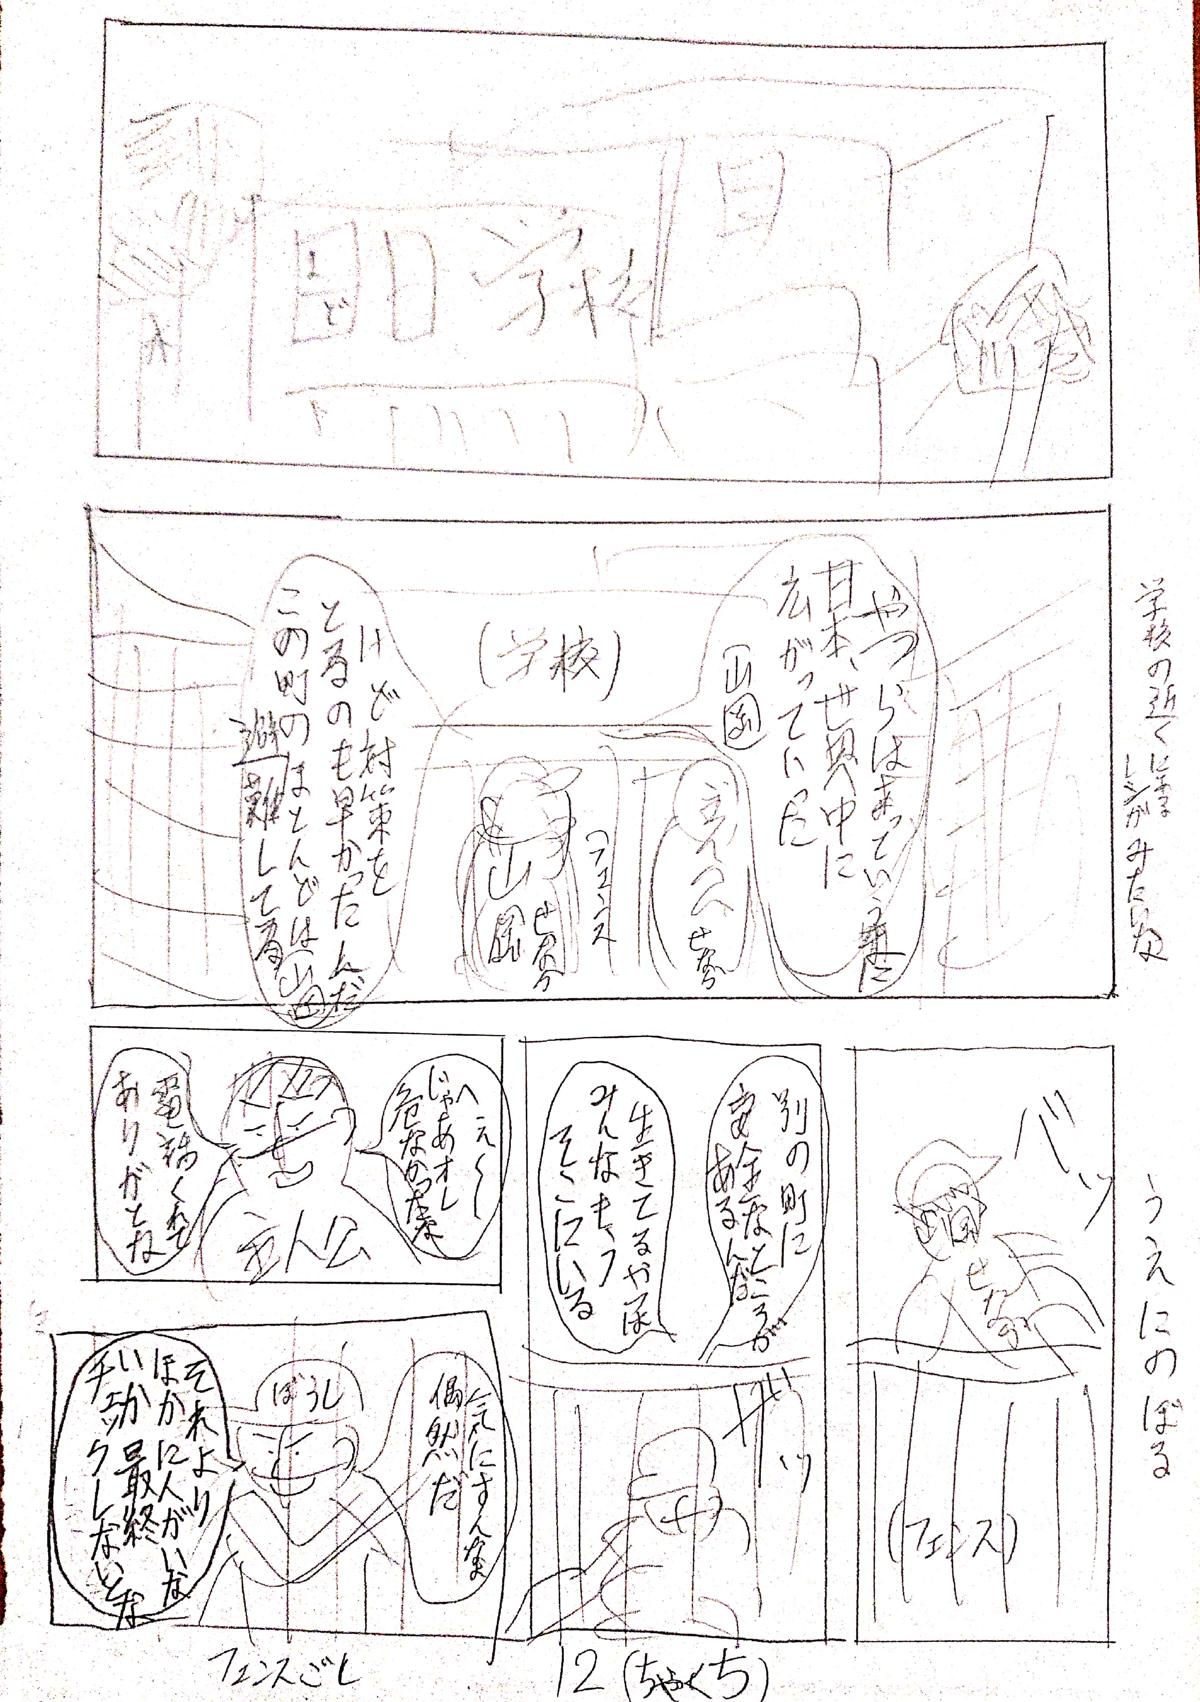 まど
学校
木
木
やつらはあっていう間に
日本、世界中に
広がっていった
山岡
(学校)
けど対策を
とるのも早かったんだ
この町のほとんどは
避難してる
山岡
フェンス
主人公
せなか
山岡
せなか
学校の近くにある
レンガみたいな
バッ
山岡
せなか
(フェンス)
うえにのぼる
別の町に
安全なところが
あるんだ
生きてるやつは
みんなもう
そこにいる
ザッ
12(ちゃくち)
へぇ〜
じゃあオレ
危なかったな
電話くれて
ありがとな
主人公
気にすんなよ
偶然だ
ぼうし
それより
ほかに人がいな
いか最終
チェックしないとな
フェンスごし